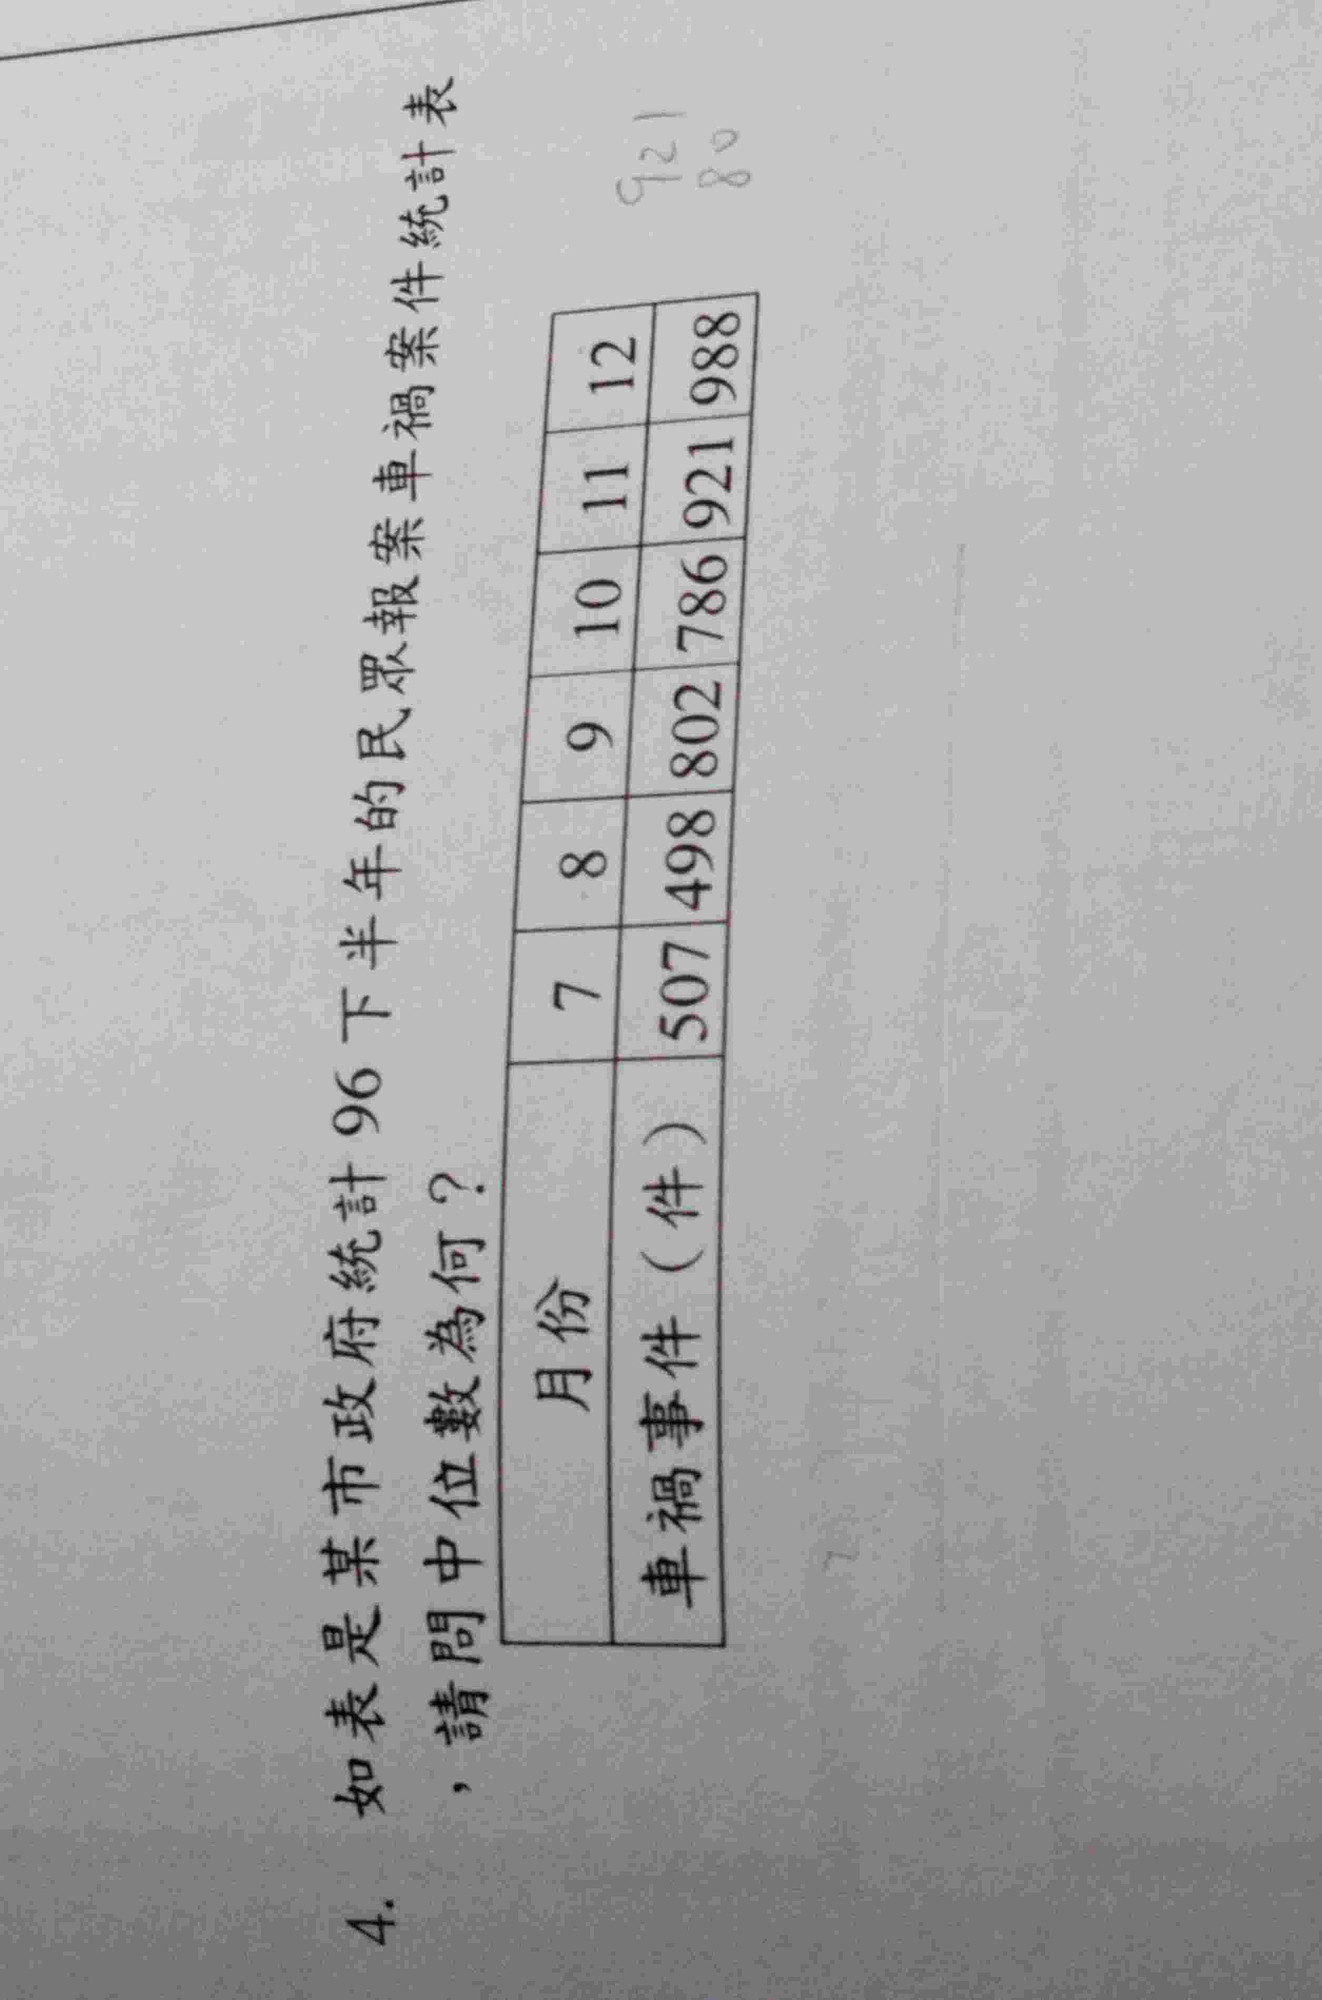 4. 如表是某市政府統計96下半年的民眾報案車禍案件統計表
，請問中位數為何？
月份 7 8 9 10 11 12
車禍事件（件） 507 498 802 786 921 988
921
80